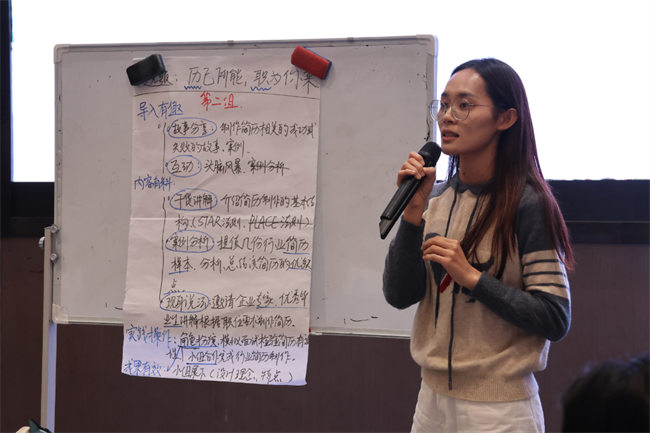 历己所能，职为你来
第二组
导入有趣
故事分享：制作简历相关的成功或
失败的故事、案例.
互动：头脑风暴、案例分析.
内容有料
干货讲解 介绍简历制作的基本结
构(STAR法则、PLACE法则)
案例分析 提供几份行业简历
样本，分析、总结该简历的优缺
点
现身说法 邀请企业专家、优秀毕
业生讲解根据职位要求制作简历.
实践操作：角色扮演，模拟面试检验简历有
小组合作完成行业简历制作.
成果有效：小组展示(设计理念、特点)